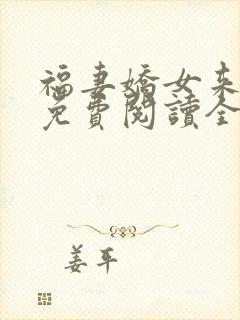 福妻嬌女來
免費閱讀全
姜平